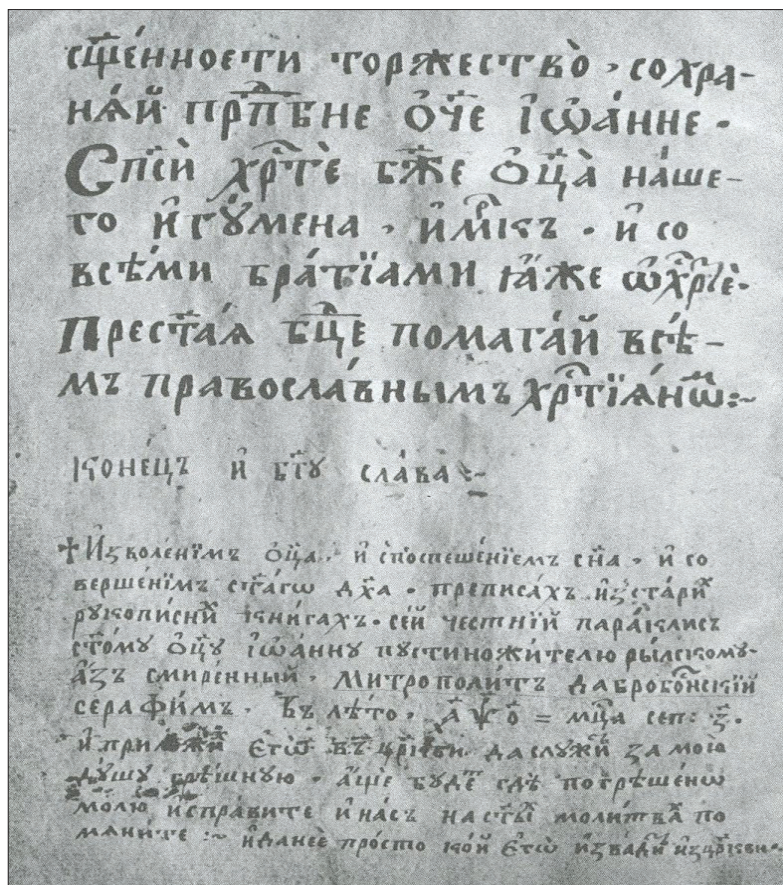 сщ҃е́нности торжество̀ , сохра-
нѧ́й прпⷣбне ѻ҆́ч҃е і҆ѡа́нне .
Сп҃сѝ хрⷭ҇тѐ бж҃е ѻ҆ц҃а̀ на́ше-
го и҆гꙋ́мена , и҆м̾къ . и҆ со
всѣ́ми бра́тїѧми ꙗ҆́же ѡ҆ хрⷭ҇тѐ .
Прест҃а́ѧ бц҃е помага́й всѣ́-
мъ правосла́внымъ хрⷭ҇тїѧ́нѡⷨ :~
коне́цъ и҆ бг҃ꙋ сла́ва :~
✝ И҆зволе́нїмъ ѻ҆ц҃а̀ . и҆ споспеше́нїемъ сн҃а . и҆ со
верше́нїмъ ст҃а́гѡ дх҃а . преписа́хъ и҆з̾ста́риⷯ
рꙋкопи́сниⷯ кни́гахъ . се́й че́стнїй пара́клисъ
ст҃о́мꙋ ѻ҆ц҃ꙋ̀ і҆ѡа́ннꙋ пꙋстиножи́телю ры́лскомꙋ .
а҆́зъ смире́нный . Митрополи́тъ даброво́нскїй
серафи́мъ . Въ лѣ́то , а҃ ѱ҃ ѻ҃ = мц҃а сеп : з҃ .
и҆ є҆тѡ̀ да слꙋжи́ за мою̀
дꙋ́шꙋ грѣ́шнꙋю . а҆́ще бꙋ́деⷮ гдѣ̀ погрѣше́нѡ
молю̀ и҆спра́вите и҆ на́съ на ст҃ы́ⷯ моли́тваⷯ по
мѧни́те :~ и҆ да не є҆̀ про́сто ко́й є҆тѡ̀ и҆зва́ди и҆зцр҃кви .